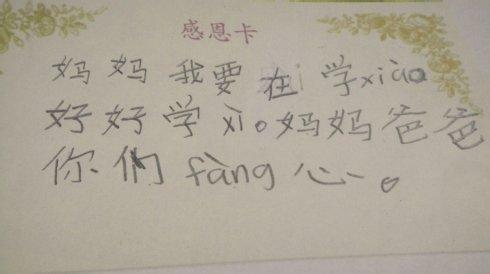 感恩卡
妈妈我要在学xiào
好好学xì。妈妈爸爸
你们fàng心。